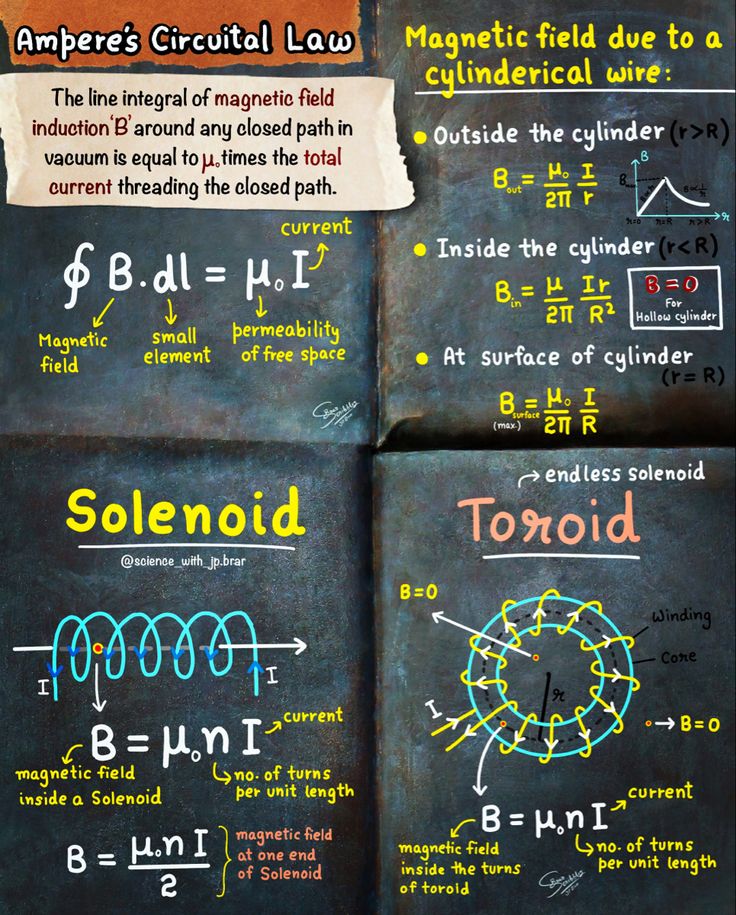 Ampere's Circuital Law
The line integral of magnetic field
induction 'B' around any closed path in
vacuum is equal to μ₀ times the total
current threading the closed path.
current
∮ B.dl = μ₀I
Magnetic field
small element
permeability of free space
Magnetic field due to a
cylinderical wire:
Outside the cylinder (r>R)
B_out = μ₀/2π I/r
B
B
B∝1/r
r=0
r=R
r>R
r
Inside the cylinder (r<R)
B_in = μ/2π Ir/R²
B=0
For
Hollow cylinder
At surface of cylinder
(r=R)
B_surface = μ₀/2π I/R
(max.)
Solenoid
@science_with_jp.brar
I
I
B = μ₀nI
current
magnetic field
inside a Solenoid
no. of turns
per unit length
B = μ₀nI/2
magnetic field
at one end
of Solenoid
endless solenoid
Toroid
B=0
Winding
Core
r
I
B=0
B = μ₀nI
current
magnetic field
inside the turns
of toroid
no. of turns
per unit length